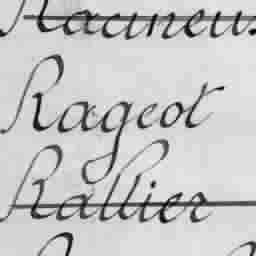 Racineux
Rageot
Rallier